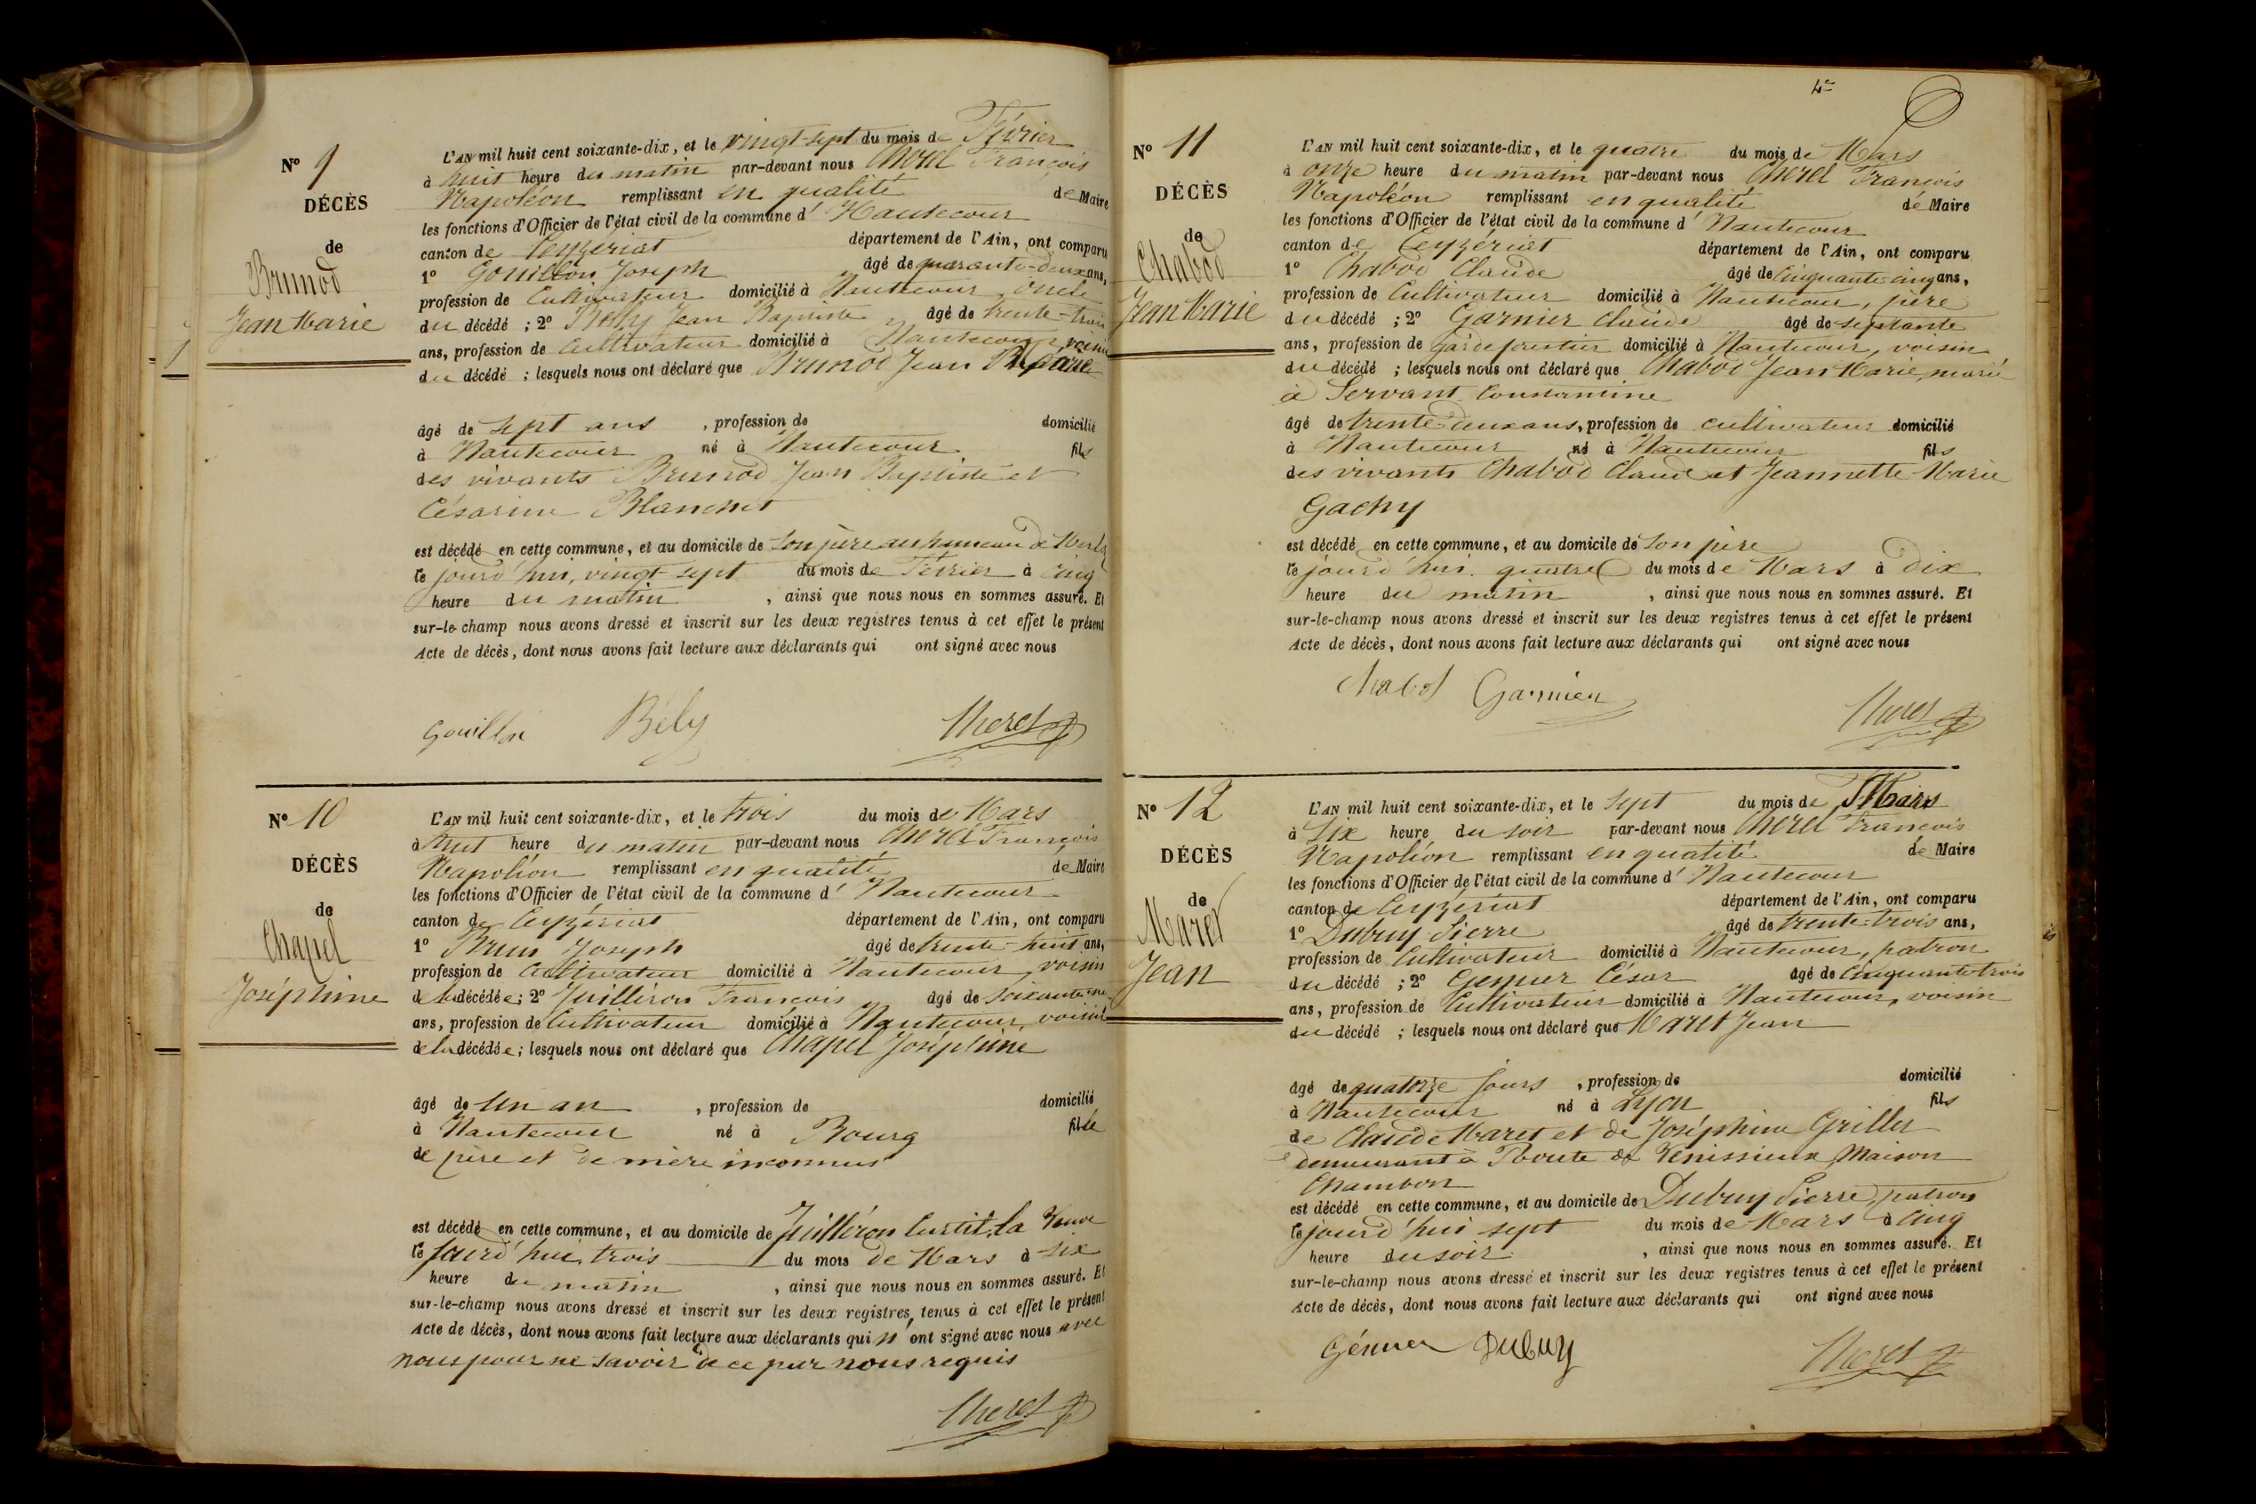 Nº 9
DÉCÈS
de
Brunod
Jean Marie
L'AN mil huit cent soixante-dix, et le vingt-sept du mois de Février
à huit heure du matin par-devant nous Cheret François
Napoléon remplissant en qualité de Maire
les fonctions d'Officier de l'état civil de la commune d' Hautecour
canton de Ceyzériat département de l'Ain, ont comparu
1º Gouillon Joseph âgé de quarante-deux ans,
profession de Cultivateur domicilié à Hautecour, oncle
du décédé ; 2º Bély Jean Baptiste âgé de trente-trois
ans, profession de cultivateur domicilié à Hautecour, voisin
du décédé ; lesquels nous ont déclaré que Brunod Jean Marie
âgé de sept ans , profession de domicilié
à Hautecour né à Hautecour fils
des vivants Brunod Jean Baptiste et
Césarine Blanchet
est décédé en cette commune, et au domicile de son père au hameau de
le jourd'hui, vingt-sept du mois de Février à cinq
heure du matin , ainsi que nous nous en sommes assuré. Et
sur-le-champ nous avons dressé et inscrit sur les deux registres tenus à cet effet le présent
Acte de décès, dont nous avons fait lecture aux déclarants qui ont signé avec nous
Gouillon Bély Cheret
Nº 10
DÉCÈS
de
Chapel
Joséphine
L'AN mil huit cent soixante-dix, et le trois du mois de Mars
à huit heure du matin par-devant nous Cheret François
Napoléon remplissant en qualité de Maire
les fonctions d'Officier de l'état civil de la commune d' Hautecour
canton de Ceyzériat département de l'Ain, ont comparu
1º Brun Joseph âgé de trente-huit ans,
profession de Cultivateur domicilié à Hautecour, voisin
de la décédée ; 2º Juilléron François âgé de soixante
ans, profession de Cultivateur domicilié à Hautecour, voisin
de la décédée ; lesquels nous ont déclaré que Chapel Joséphine
âgé de Un an , profession de domicilié
à Hautecour né à Bourg fille
de père et de mère inconnus
est décédé en cette commune, et au domicile de Juilléron Curtil, la Veuve
le jourd'hui trois du mois de Mars à six
heure du matin , ainsi que nous nous en sommes assuré. Et
sur-le-champ nous avons dressé et inscrit sur les deux registres, tenus à cet effet le présent
Acte de décès, dont nous avons fait lecture aux déclarants qui n'ont signé avec nous avec
nous pour ne savoir de ce par nous requis
Cheret
4e
Nº 11
DÉCÈS
de
Chabod
Jean Marie
L'AN mil huit cent soixante-dix, et le quatre du mois de Mars
à onze heure du matin par-devant nous Cheret François
Napoléon remplissant en qualité de Maire
les fonctions d'Officier de l'état civil de la commune d' Hautecour
canton de Ceyzériat département de l'Ain, ont comparu
1º Chabod Claude âgé de cinquante-cinq ans,
profession de Cultivateur domicilié à Hautecour, père
du décédé ; 2º Garnier Claude âgé de septante
ans, profession de garde forestier domicilié à Hautecour, voisin
du décédé ; lesquels nous ont déclaré que Chabod Jean Marie, marié
à Servant Constantine
âgé de trente deux ans, profession de cultivateur domicilié
à Hautecour né à Hautecour fils
des vivants Chabod Claude et Jeannette-Marie
Gachy
est décédé en cette commune, et au domicile de son père
le jourd'hui quatre du mois de Mars à dix
heure du matin , ainsi que nous nous en sommes assuré. Et
sur-le-champ nous avons dressé et inscrit sur les deux registres tenus à cet effet le présent
Acte de décès, dont nous avons fait lecture aux déclarants qui ont signé avec nous
Chabod Garnier Cheret
Nº 12
DÉCÈS
de
Maret
Jean
L'AN mil huit cent soixante-dix, et le sept du mois de Mars
à Six heure du soir par-devant nous Cheret François
Napoléon remplissant en qualité de Maire
les fonctions d'Officier de l'état civil de la commune d' Hautecour
canton de Ceyzériat département de l'Ain, ont comparu
1º Dubuy Pierre âgé de trente-trois ans,
profession de Cultivateur domicilié à Hautecour, patron
du décédé ; 2º César âgé de cinquante-trois
ans, profession de Cultivateur domicilié à Hautecour, voisin
du décédé ; lesquels nous ont déclaré que Maret Jean
âgé de quatorze jours , profession de domicilié
à Hautecour né à Lyon fils
de Claude Maret et de Joséphine Grillet
demeurant à Route de Vénissieux Maison
Chambon
est décédé en cette commune, et au domicile de Dubuy Pierre, patron
le jourd'hui sept du mois de Mars à cinq
heure du soir , ainsi que nous nous en sommes assuré. Et
sur-le-champ nous avons dressé et inscrit sur les deux registres tenus à cet effet le présent
Acte de décès, dont nous avons fait lecture aux déclarants qui ont signé avec nous
Dubuy Cheret